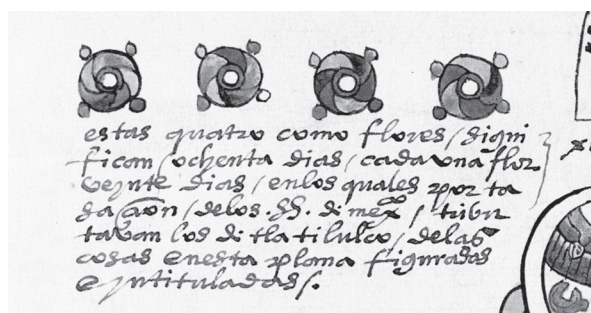 estas quatro como flores / signi
fican / ochenta dias / cada una flor
veynte dias / en los quales por ta
saçion / delos .SS. di mexco / tribu
tavan los di tlatilulco / delas
cosas enesta plana figuradas
e yntituladas /.